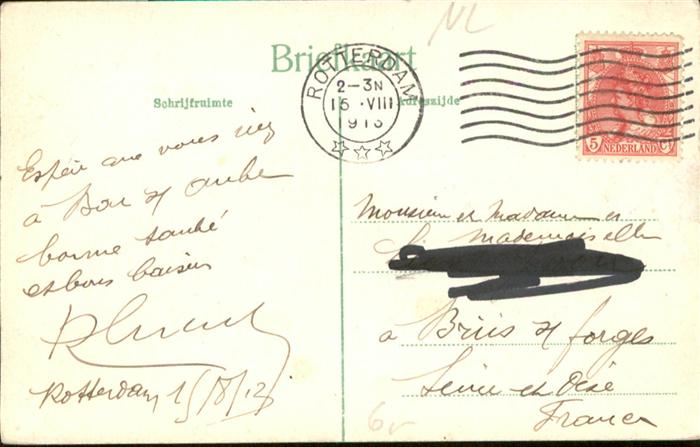 NL
Briefkaart
ROTTERDAM
2-3N
15 .VIII
1913
5 CT
NEDERLAND
Schrijfruimte
Adreszijde
Espère que vous
à Bar s/ aube
bonne santé
et bons baisers
Rotterdam 15/8/13
Monsieur et Madame et
Mademoiselle
à Briis s/ forges
Seine et Oise
France